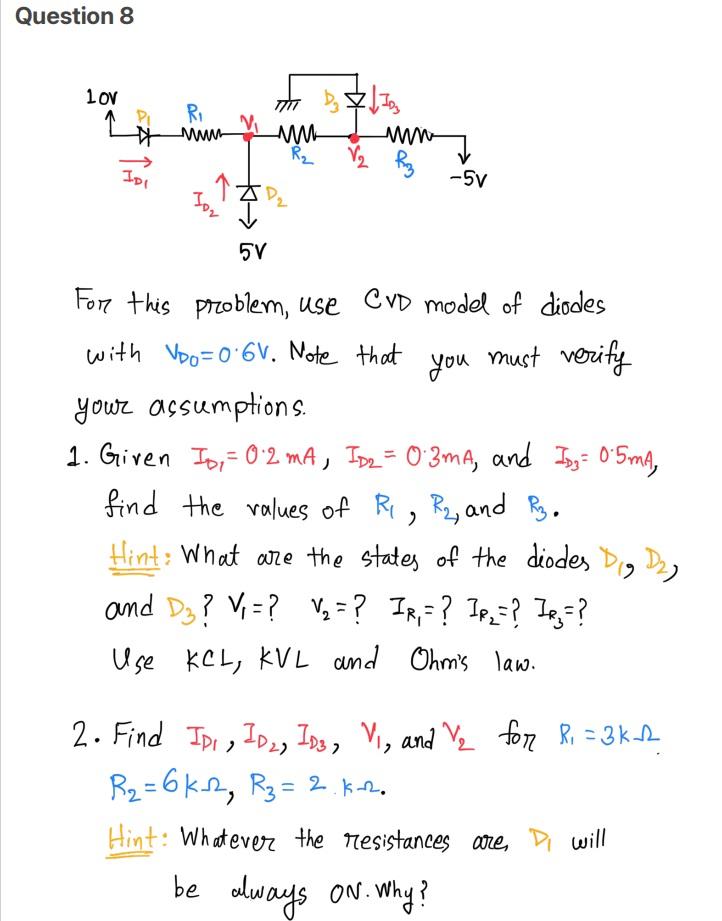 Question 8
10V
D1
R1
V1
R2
D3
ID3
V2
R3
-5V
ID1
ID2
D2
5V
For this problem, use CVD model of diodes
with VD0=0.6V. Note that you must verify
your assumptions.
1. Given ID1=0.2 mA, ID2=0.3mA, and ID3=0.5mA,
find the values of R1, R2, and R3.
Hint: What are the states of the diodes D1, D2,
and D3? V1=? V2=? IR1=? IR2=? IR3=?
Use KCL, KVL and Ohm's law.
2. Find ID1, ID2, ID3, V1, and V2 for R1=3kΩ
R2=6kΩ, R3=2.kΩ.
Hint: Whatever the resistances are, D1 will
be always ON. Why?